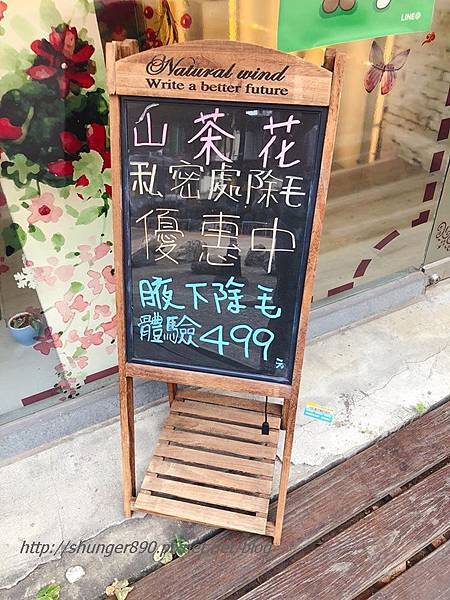 LINE
Natural wind
Write a better future
山茶花
私密處除毛
優惠中
腋下除毛
體驗499元